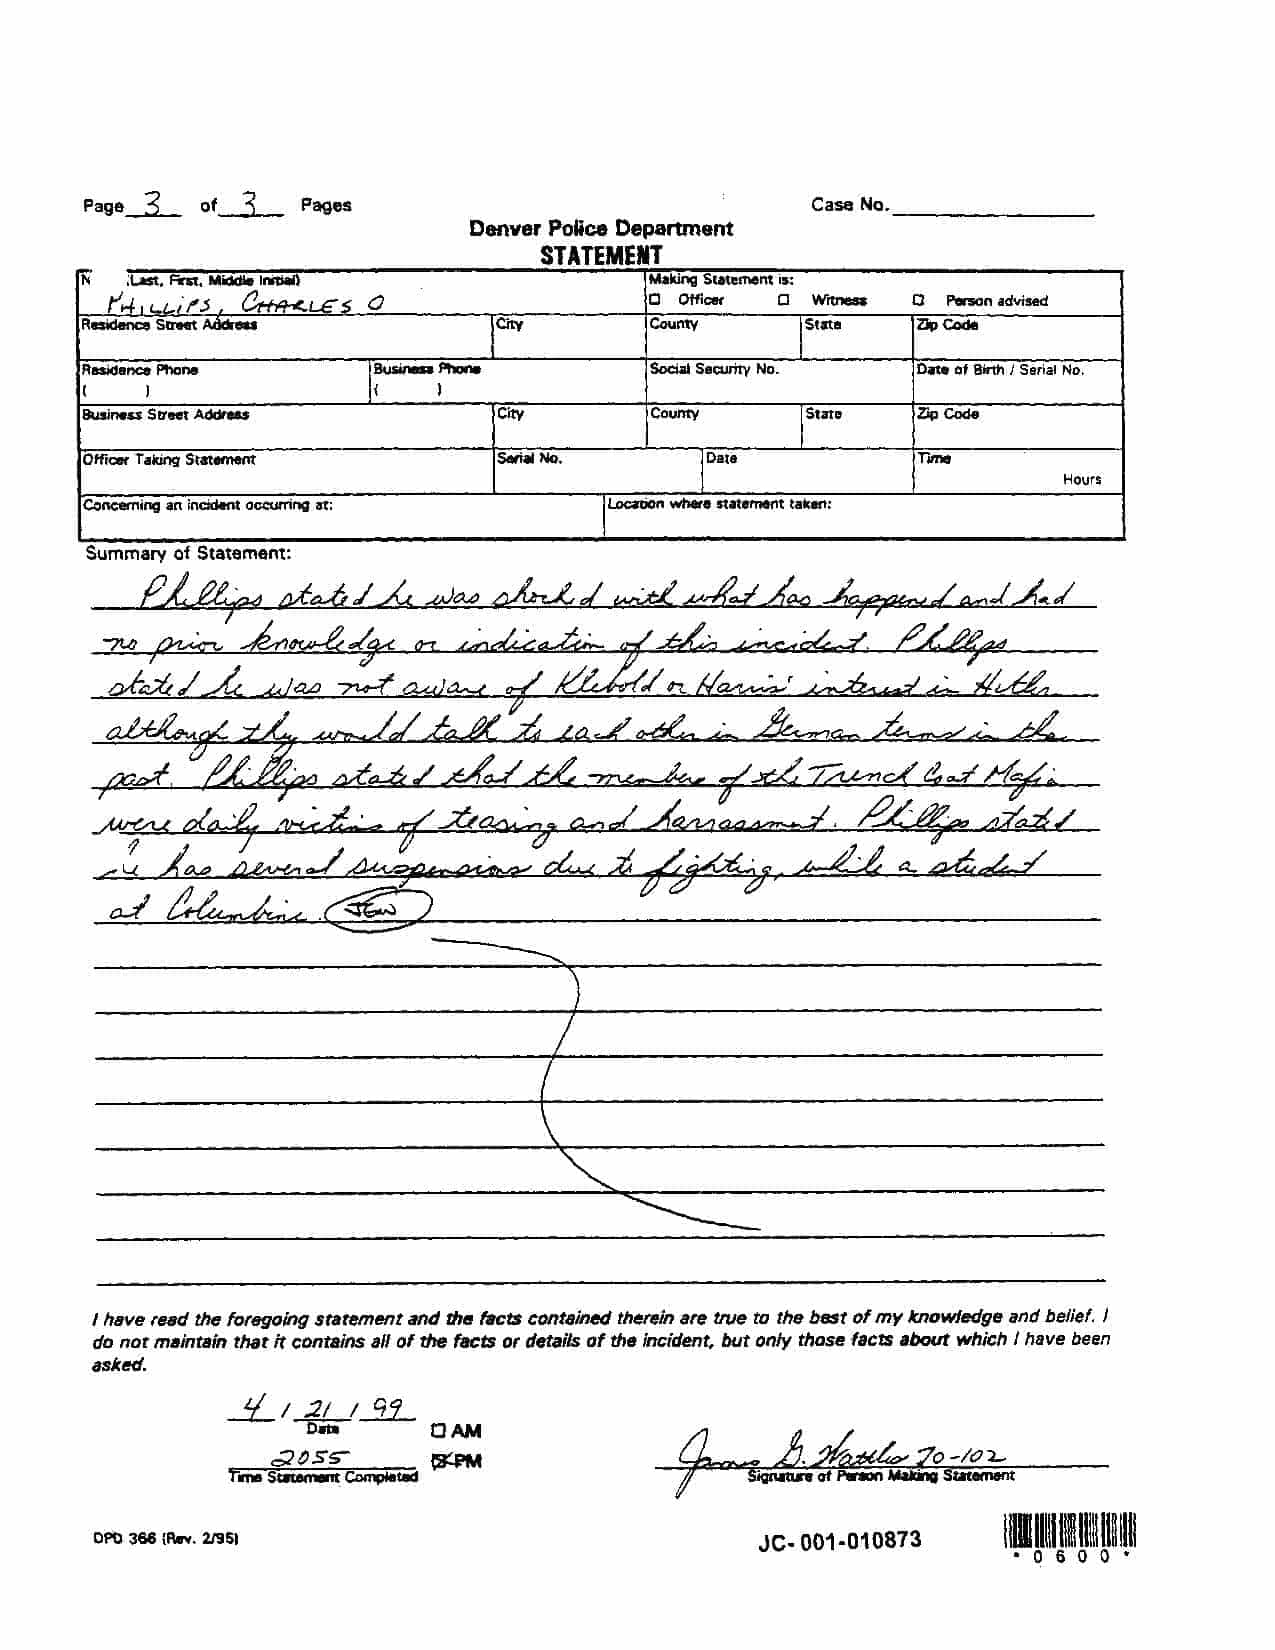 Page 3 of 3 Pages Case No.
Denver Police Department
STATEMENT
N (Last, First, Middle Initial) Making Statement is:
PHILLIPS, CHARLES O ☐ Officer ☐ Witness ☐ Person advised
Residence Street Address City County State Zip Code
Residence Phone Business Phone Social Security No. Date of Birth / Serial No.
( ) ( )
Business Street Address City County State Zip Code
Officer Taking Statement Serial No. Date Time
Hours
Concerning an incident occurring at: Location where statement taken:
Summary of Statement:
Phillips stated he was shocked with what has happened and had
no prior knowledge or indication of this incident. Phillips
stated he was not aware of Klebold or Harris' interest in Hitler
although they would talk to each other in German terms in the
past. Phillips stated that the members of the Trench Coat Mafia
were daily victims of teasing and harrassment. Phillips stated
he has several suspensions due to fighting, while a student
at Columbine. JGW
I have read the foregoing statement and the facts contained therein are true to the best of my knowledge and belief. I
do not maintain that it contains all of the facts or details of the incident, but only those facts about which I have been
asked.
4 / 21 / 99
Date ☐ AM
2055 ☒ PM
James G. 70-102
Time Statement Completed Signature of Person Making Statement
DPD 366 (Rev. 2/95) JC-001-010873
* 0 6 0 0 *